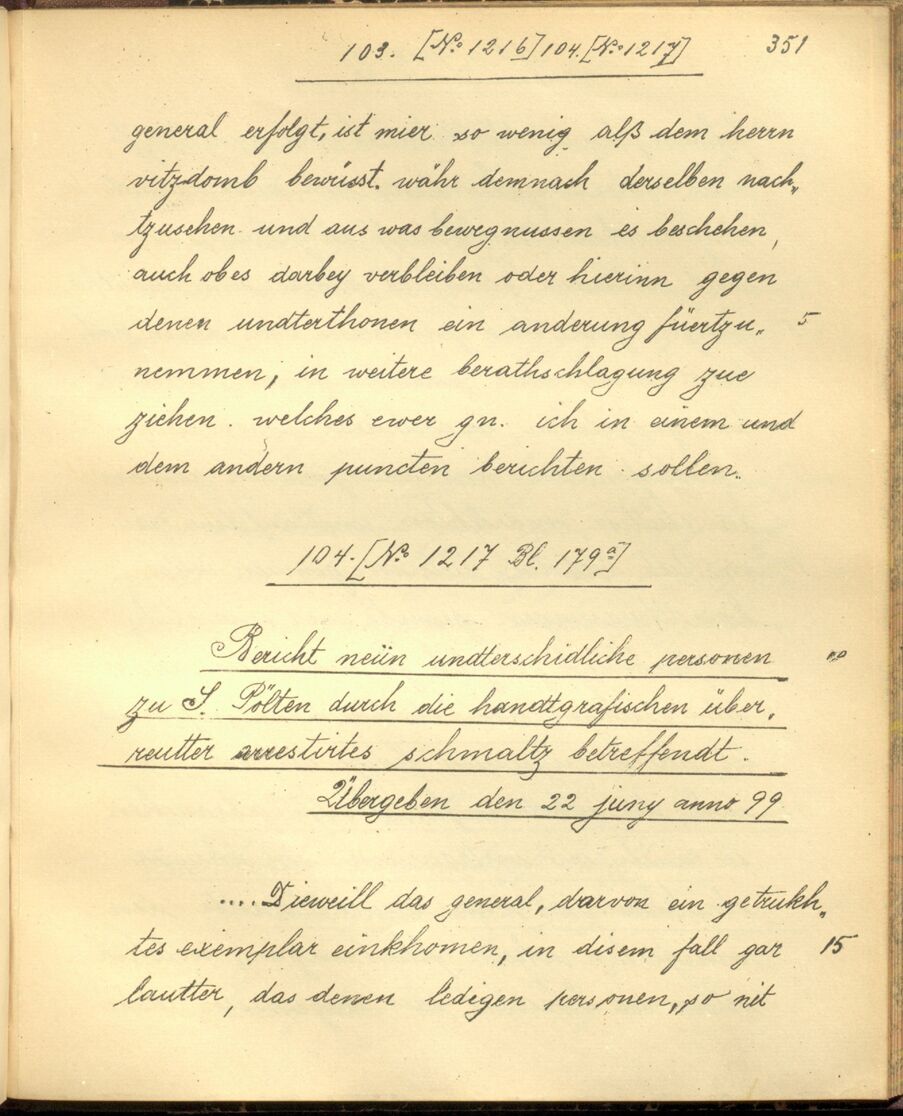 103. [No 1216] 104. [No 1217] 351
general erfolgt, ist mier so wenig alß dem herrn
vitzdomb bewüsst. währ demnach derselben nach„
tzusehen und aus was bewegnussen es beschehen,
auch ob es darbey verbleiben oder hierinn gegen
denen undterthonen ein anderung füertzu„ 5
nemmen, in weitere berathschlagung zue
ziehen. welches ewer gn. ich in einem und
dem andern puncten berichten sollen.
104. [No 1217 Bl. 179a]
Bericht neün undterschidliche personen 10
zu S. Pölten durch die handtgrafischen über„
reutter arrestirtes schmaltz betreffendt.
Übergeben den 22 juny anno 99
.... Dieweill das general, darvon ein getrukh„
tes exemplar einkhomen, in disem fall gar 15
lautter, das denen ledigen personen, so nit